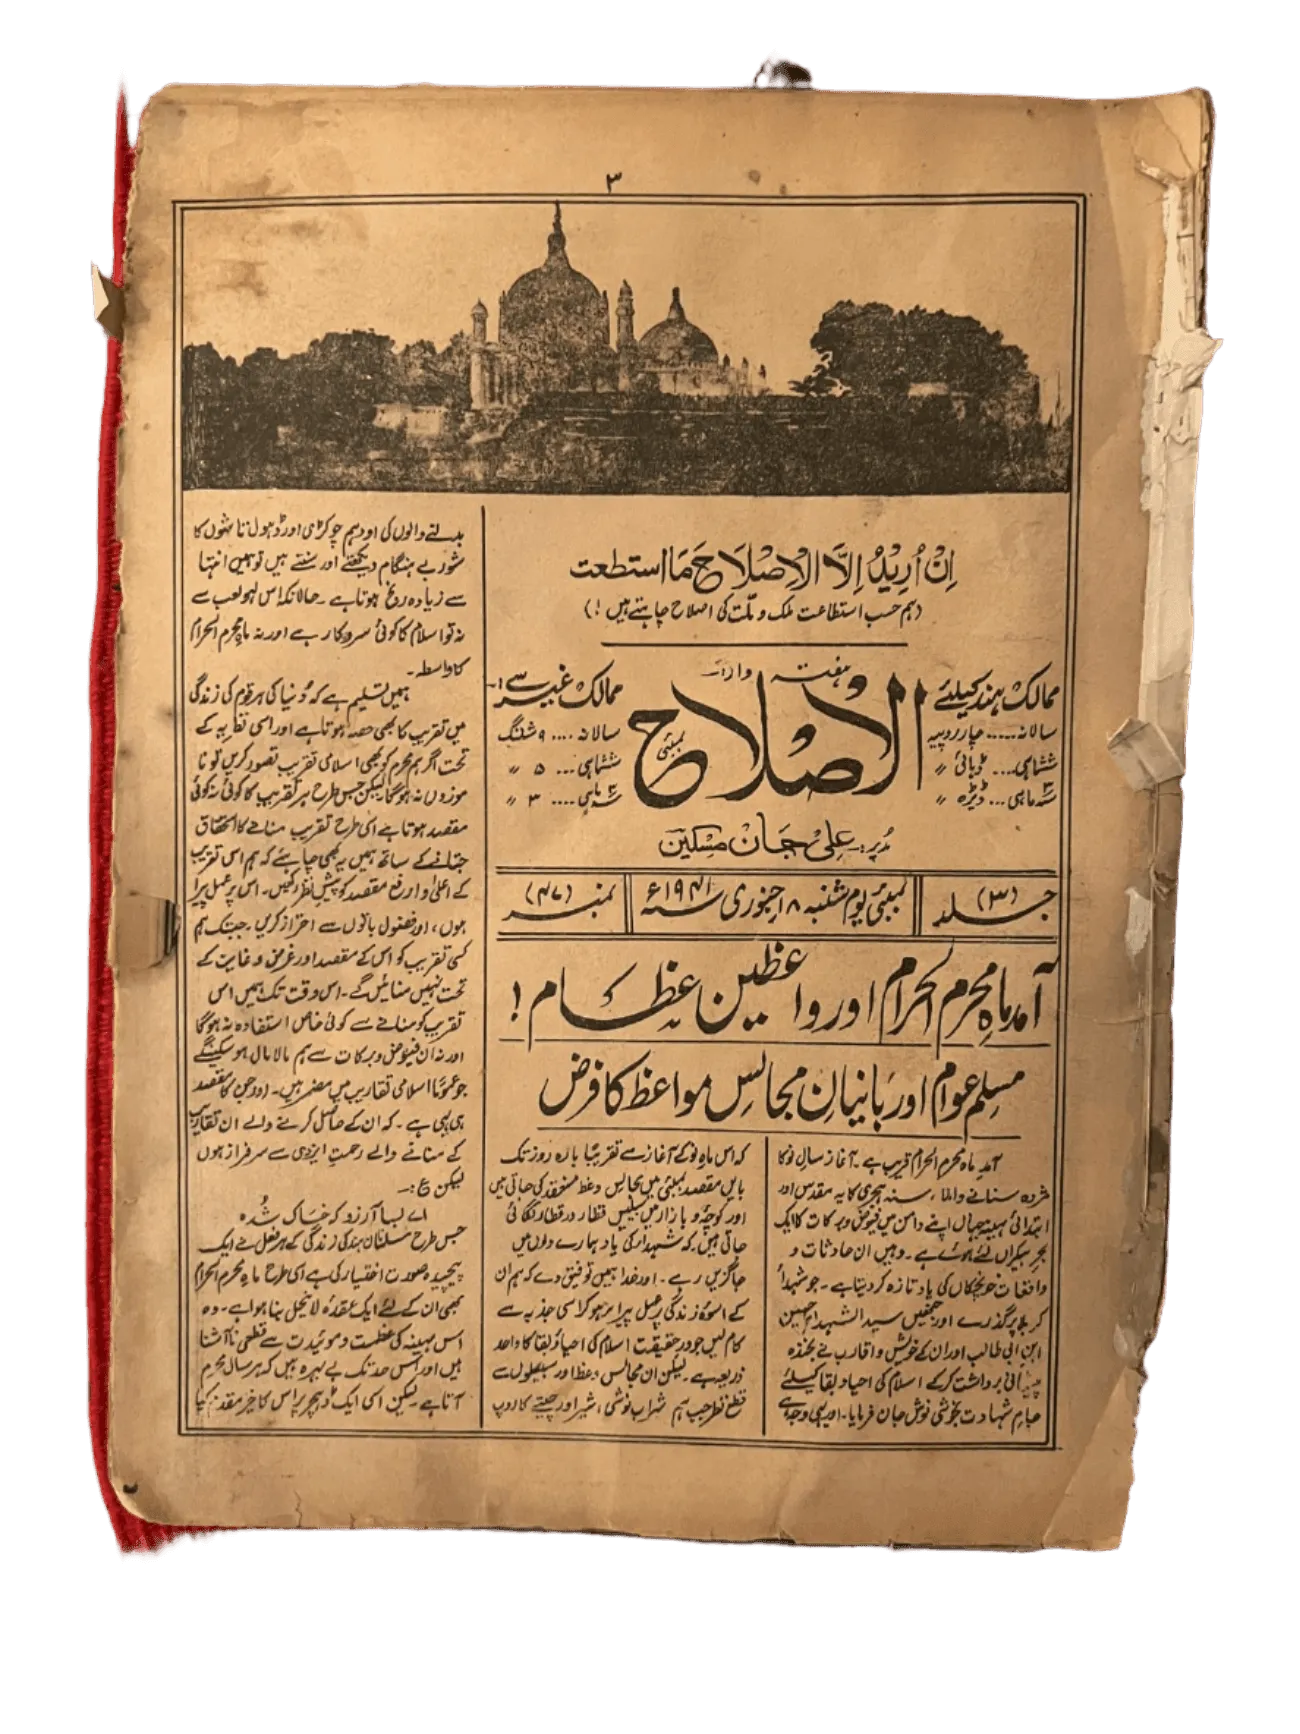 ۳
اِنْ اُرِیْدُ اِلَّا الْاِصْلَاحَ مَا اسْتطعت
(ہم حسب استطاعت ملک و ملّت کی اصلاح چاہتے ہیں!)
ممالک ہند کیلئے
سالانہ ..... چار روپیہ
ششماہی ... ڈہائی 〃
سہ ماہی ... ڈیڑہ 〃
ہفتہ وار
الاصلاح
بمبئی
ممالک غیر سے:-
سالانہ .... ۹ شلنگ
ششماہی ... ۵ 〃
سہ ماہی .... ۳ 〃
مدیر:۔ علی جان مسکین
جلد (۳)
بمبئی یوم شنبہ ۱۸ جنوری سنہ ۱۹۴۱ء
نمبر (۴۷)
آمد ماہِ محرم الحرام اور واعظین عظام!
مسلم عوام اور بانیانِ مجالسِ مواعظ کا فرض
آمدِ ماہ محرم الحرام قریب ہے۔ آغازِ سالِ نو کا
مژدہ سنانے والا، سنہ ہجری کا یہ مقدس اور
ابتدائی مہینہ جہاں اپنے دامن میں فیوض و برکات کا ایک
بحرِ بیکراں لئے ہوئے ہے۔ وہیں ان حادثات و
واقعات خونچکاں کی یاد تازہ کر دیتا ہے۔ جو شہدأ
کربلا پر گذرے اور جنھیں سید الشہدا حسین
ابن ابی طالب اور ان کے خویش و اقارب نے بخندہ
پیشانی برداشت کر کے اسلام کی احیاء و بقا کیلئے
جامِ شہادت بخوشی نوش جان فرمایا۔ اور یہی وجہ ہے
کہ اس ماہِ نو کے آغاز سے تقریباً بارہ روز تک
بایں مقصد بمبئی میں مجالس وعظ منعقد کی جاتی ہیں
اور کوچہ و بازار میں سبیلیں قطار در قطار لگائی
جاتی ہیں کہ شہداء کی یاد ہمارے دلوں میں
جاگزیں رہے۔ اور خدا ہمیں توفیق دے کہ ہم ان
کے اسوۂ زندگی پر عمل پیرا ہو کر اسی جذبہ سے
کام لیں جو در حقیقت اسلام کی احیاء و بقا کا واحد
ذریعہ ہے۔ لیکن ان مجالس وعظ اور سبیلوں سے
قطع نظر جب ہم شراب نوشی، شیر اور چیتے کا روپ
بدلنے والوں کی اودہم چوکڑی اور ڈہول تاشوں کا
شور بے ہنگام دیکھتے اور سنتے ہیں تو ہمیں انتہا
سے زیادہ رنج ہوتا ہے۔ حالانکہ اس لہو لعب سے
نہ تو اسلام کا کوئی سروکار ہے اور نہ ماہِ محرم الحرام
کا واسطہ۔
ہمیں تسلیم ہے کہ دُنیا کی ہر قوم کی زندگی
میں تقریب کا بھی حصہ ہوتا ہے اور اسی نظریہ کے
تحت اگر ہم محرم کو بھی اسلامی تقریب تصور کریں تو نا
موزوں نہ ہوگا۔ لیکن جس طرح ہر تقریب کا کوئی نہ کوئی
مقصد ہوتا ہے اسی طرح تقریب منانے کا استحقاق
جتلانے کے ساتھ ہمیں یہ بھی چاہئے کہ ہم اس تقریب
کے اعلیٰ و ارفع مقصد کو پیش نظر رکھیں۔ اس پر عمل پیرا
ہوں، اور فضول باتوں سے احتراز کریں۔ جبتک ہم
کسی تقریب کو اس کے مقصد اور غرض و غایت کے
تحت نہیں منائیں گے۔ اس وقت تک ہمیں اس
تقریب کو منانے سے کوئی خاص استفادہ نہ ہوگا
اور نہ ان فیوض و برکات سے ہم مالا مال ہو سکینگے
جو عموماً اسلامی تقاریب میں مضمر ہیں۔ اور جن کا مقصد
ہی یہی ہے۔ کہ ان کے حاصل کرنے والے ان تقاریب
کے منانے والے رحمتِ ایزدی سے سرفراز ہوں
لیکن ع:۔
اے بسا آرزو کہ خاک شدہ
جس طرح مسلمانانِ ہند کی زندگی کے ہر فعل نے ایک
پیچیدہ صورت اختیار کی ہے اسی طرح ماہِ محرم الحرام
بھی ان کے لئے ایک عقدہ لانیحل بنا ہوا ہے۔ وہ
اس مہینہ کی عظمت و موئیدت سے قطعی نا آشنا
ہیں اور اس حد تک بے بہرہ ہیں کہ ہر سال محرم
آتا ہے۔ لیکن اسی ایک ڈہچر پر اس کا خیر مقدم کیا